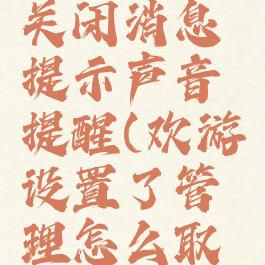 关闭消息
提示声音
提醒(欢游
设置了管
理怎么取